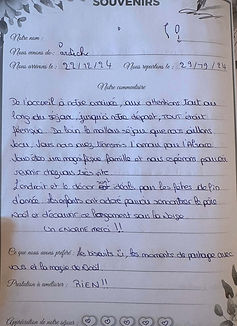 SOUVENIRS
Notre nom :
Nous venons de : Ardèche
Nous arrivons le : 22/12/24 Nous repartons le : 29/12/24
Notre commentaire
De l'accueil à notre arrivée, aux attentions tout au
long du séjour, jusqu'à notre départ, tout était
féerique. De loin le meilleur séjour que nous ayons
Nous avez l'amour pour l'Alsace.
Vous êtes une magnifique famille et nous espérons pouvoir
revenir chez vous très vite
L'endroit et le décor est idéal pour les fêtes de fin
d'année. Les enfants ont adoré pouvoir rencontrer le père
Noël et découvrir ce logement sous la neige.
Un énorme merci !!
Ce que nous avons préféré : les biscuits, les moments de partage avec
vous et la magie de Noël
Prestation à améliorer : RIEN !!
Appréciation de notre séjour